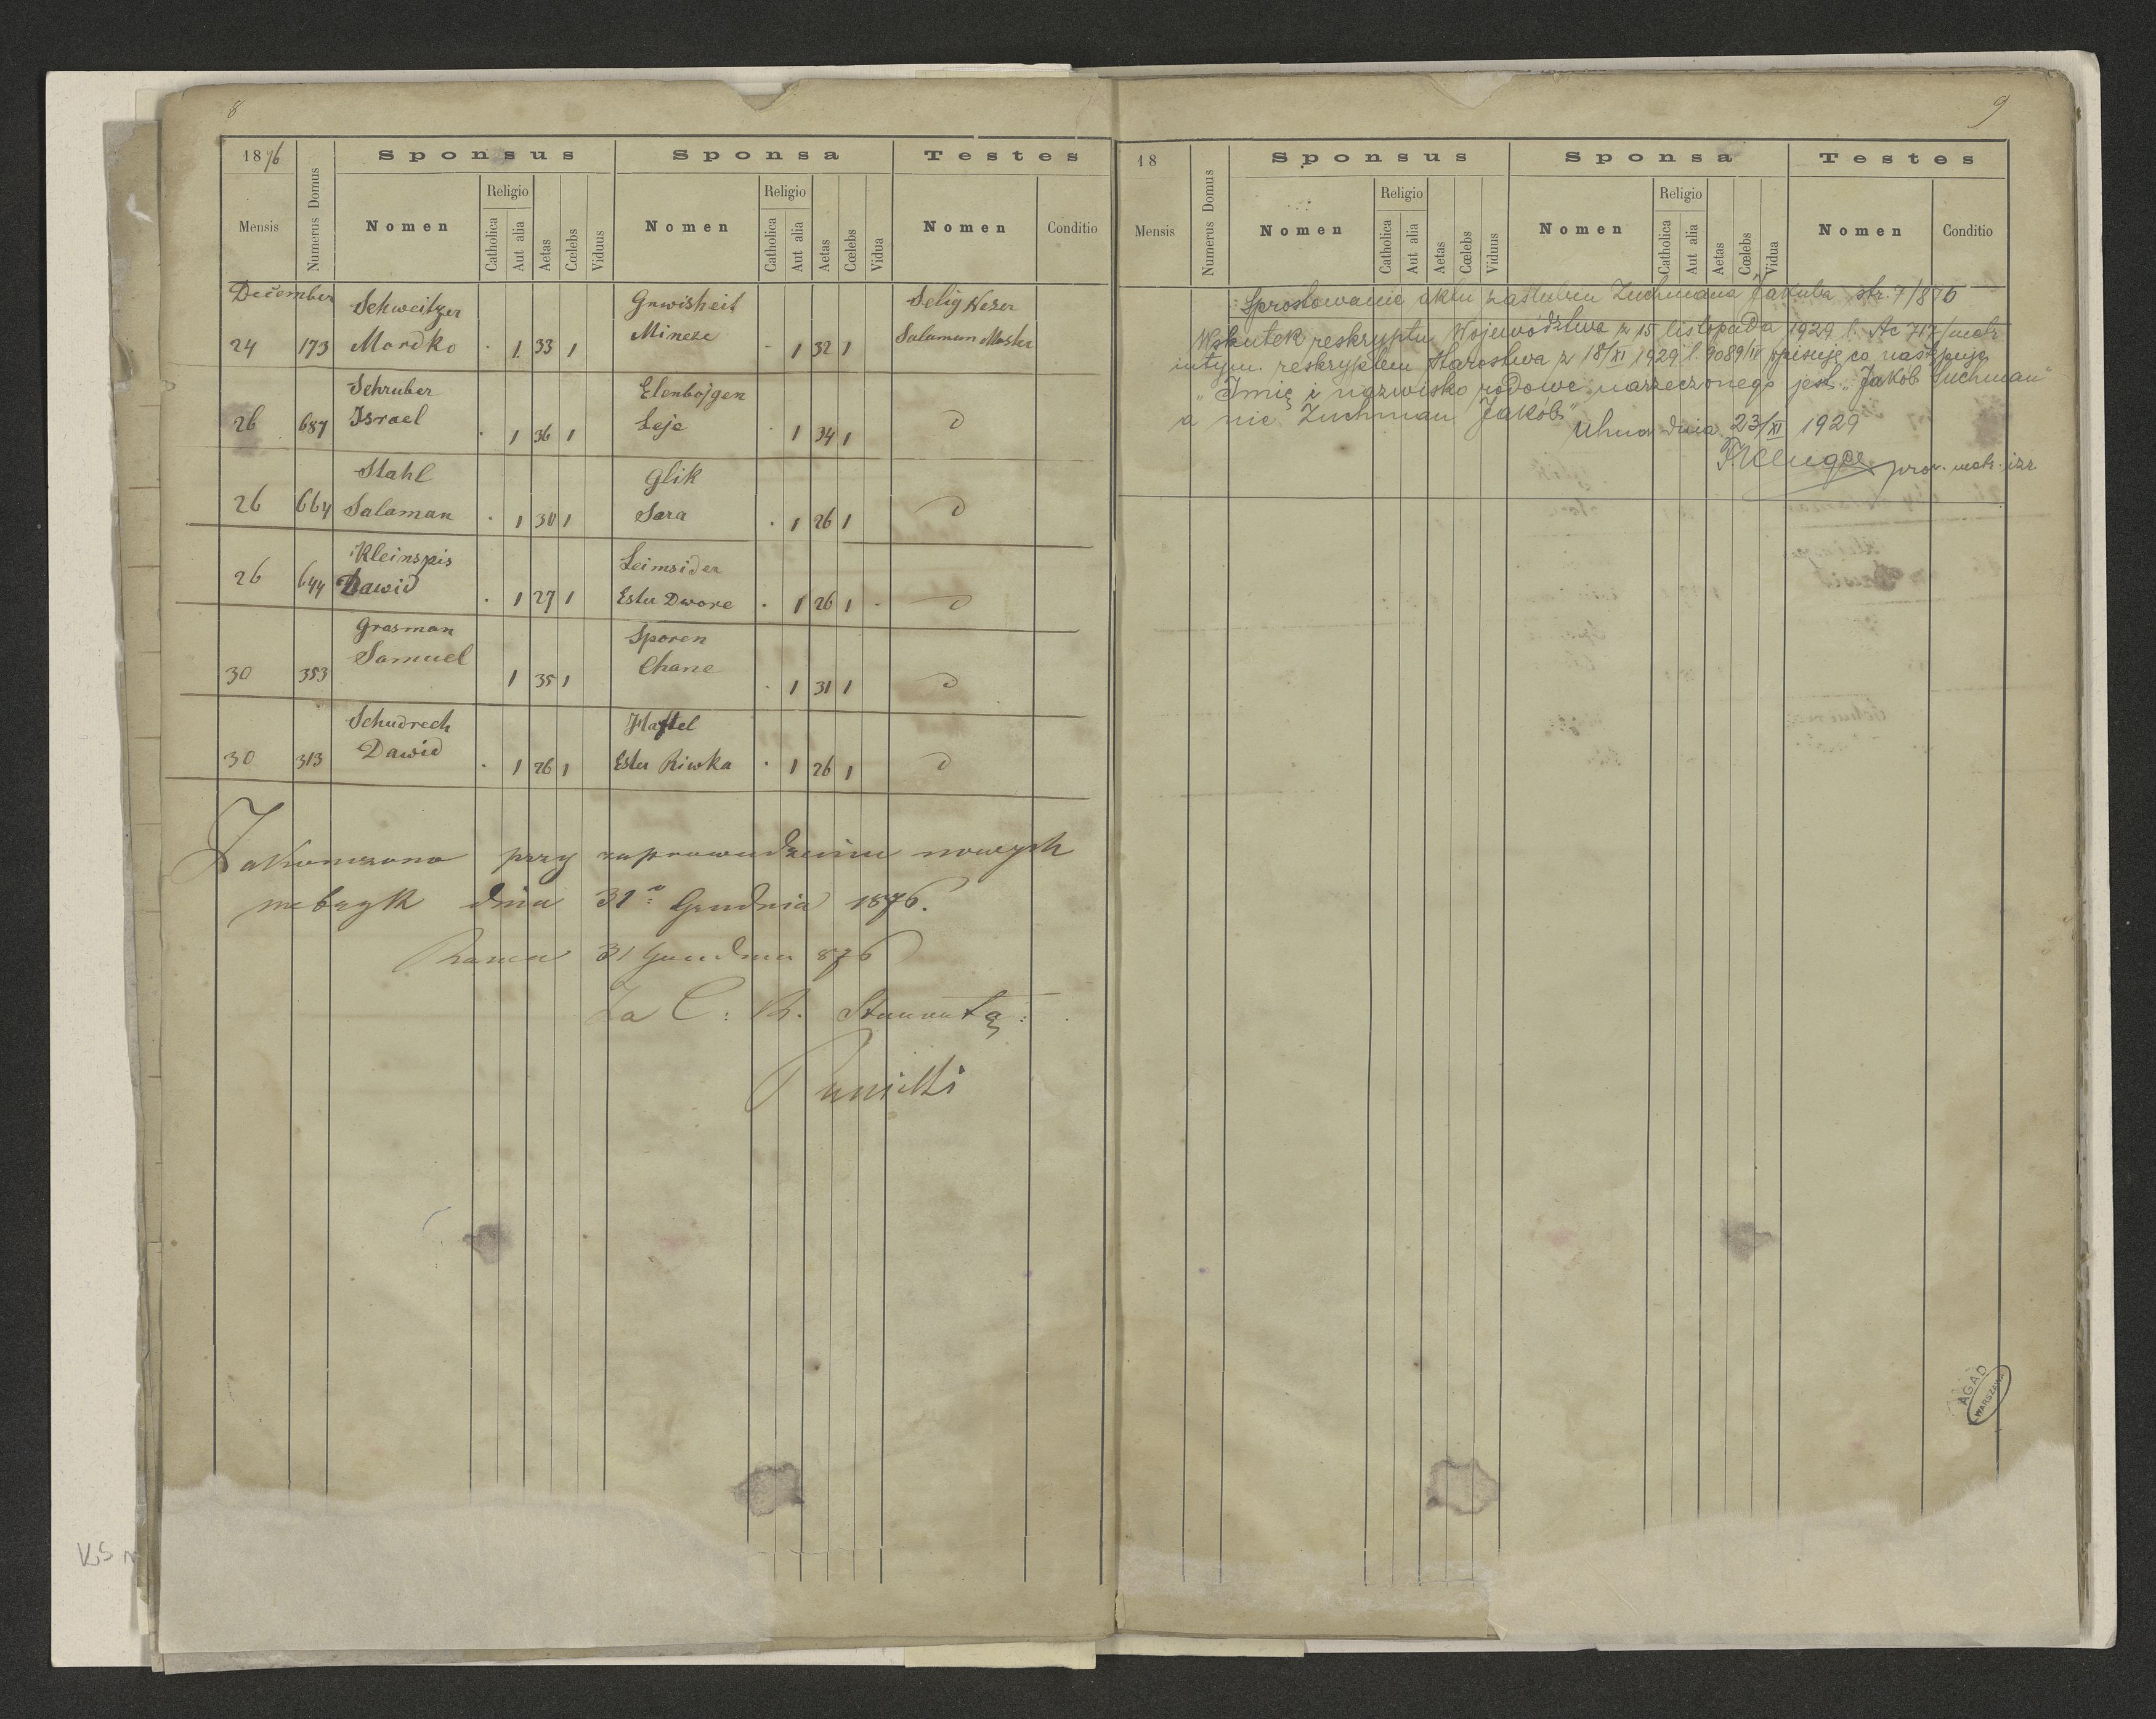 8
1876
Mensis
Numerus Domus
Sponsus
Nomen
Religio
Catholica
Aut alia
Aetas
Cœlebs
Viduus
Sponsa
Nomen
Religio
Catholica
Aut alia
Aetas
Cœlebs
Vidua
Testes
Nomen
Conditio
December
24 173 Schweitzer Mordko 1 33 1 Gnwisheit Mineze 1 32 1 Selig Weser
Salamon Moster
26 687 Schruber Israel 1 36 1 Elenbojgen Leje 1 34 1
26 664 Stahl Salaman 1 30 1 Glik Sara 1 26 1
26 644 Kleinspis Dawid 1 27 1 Leimsider Ester Dwore 1 26 1
30 353 Grasman Samuel 1 35 1 Sporen Chane 1 31 1
30 313 Schudrech Dawid 1 26 1 Haftel Ester Riwka 1 26 1
Zakonczono przy zaprowadzeniu nowych
metryk dnia 31º Grudnia 1876.
Rawa 31 Grudnia 876
Za C. K. Starostę
9
18
Mensis
Numerus Domus
Sponsus
Nomen
Religio
Catholica
Aut alia
Aetas
Cœlebs
Viduus
Sponsa
Nomen
Religio
Catholica
Aut alia
Aetas
Cœlebs
Vidua
Testes
Nomen
Conditio
Sprostowanie aktu zaślubin Zuchmana Jakuba str. 7/876
Wskutek reskryptu Województwa z 15 listopada 1929 l. Ac 717/metr
intym. reskryptem Starostwa z 18/XI 1929 l. 9089/IV wpisuję co następuje
"Imię i nazwisko rodowe narzeczonego jest "Jakób Suchman"
a nie Zuchman Jakób"
Uhnow dnia 23/XI 1929
prow. metr. izr.
AGAD
WARSZAWA